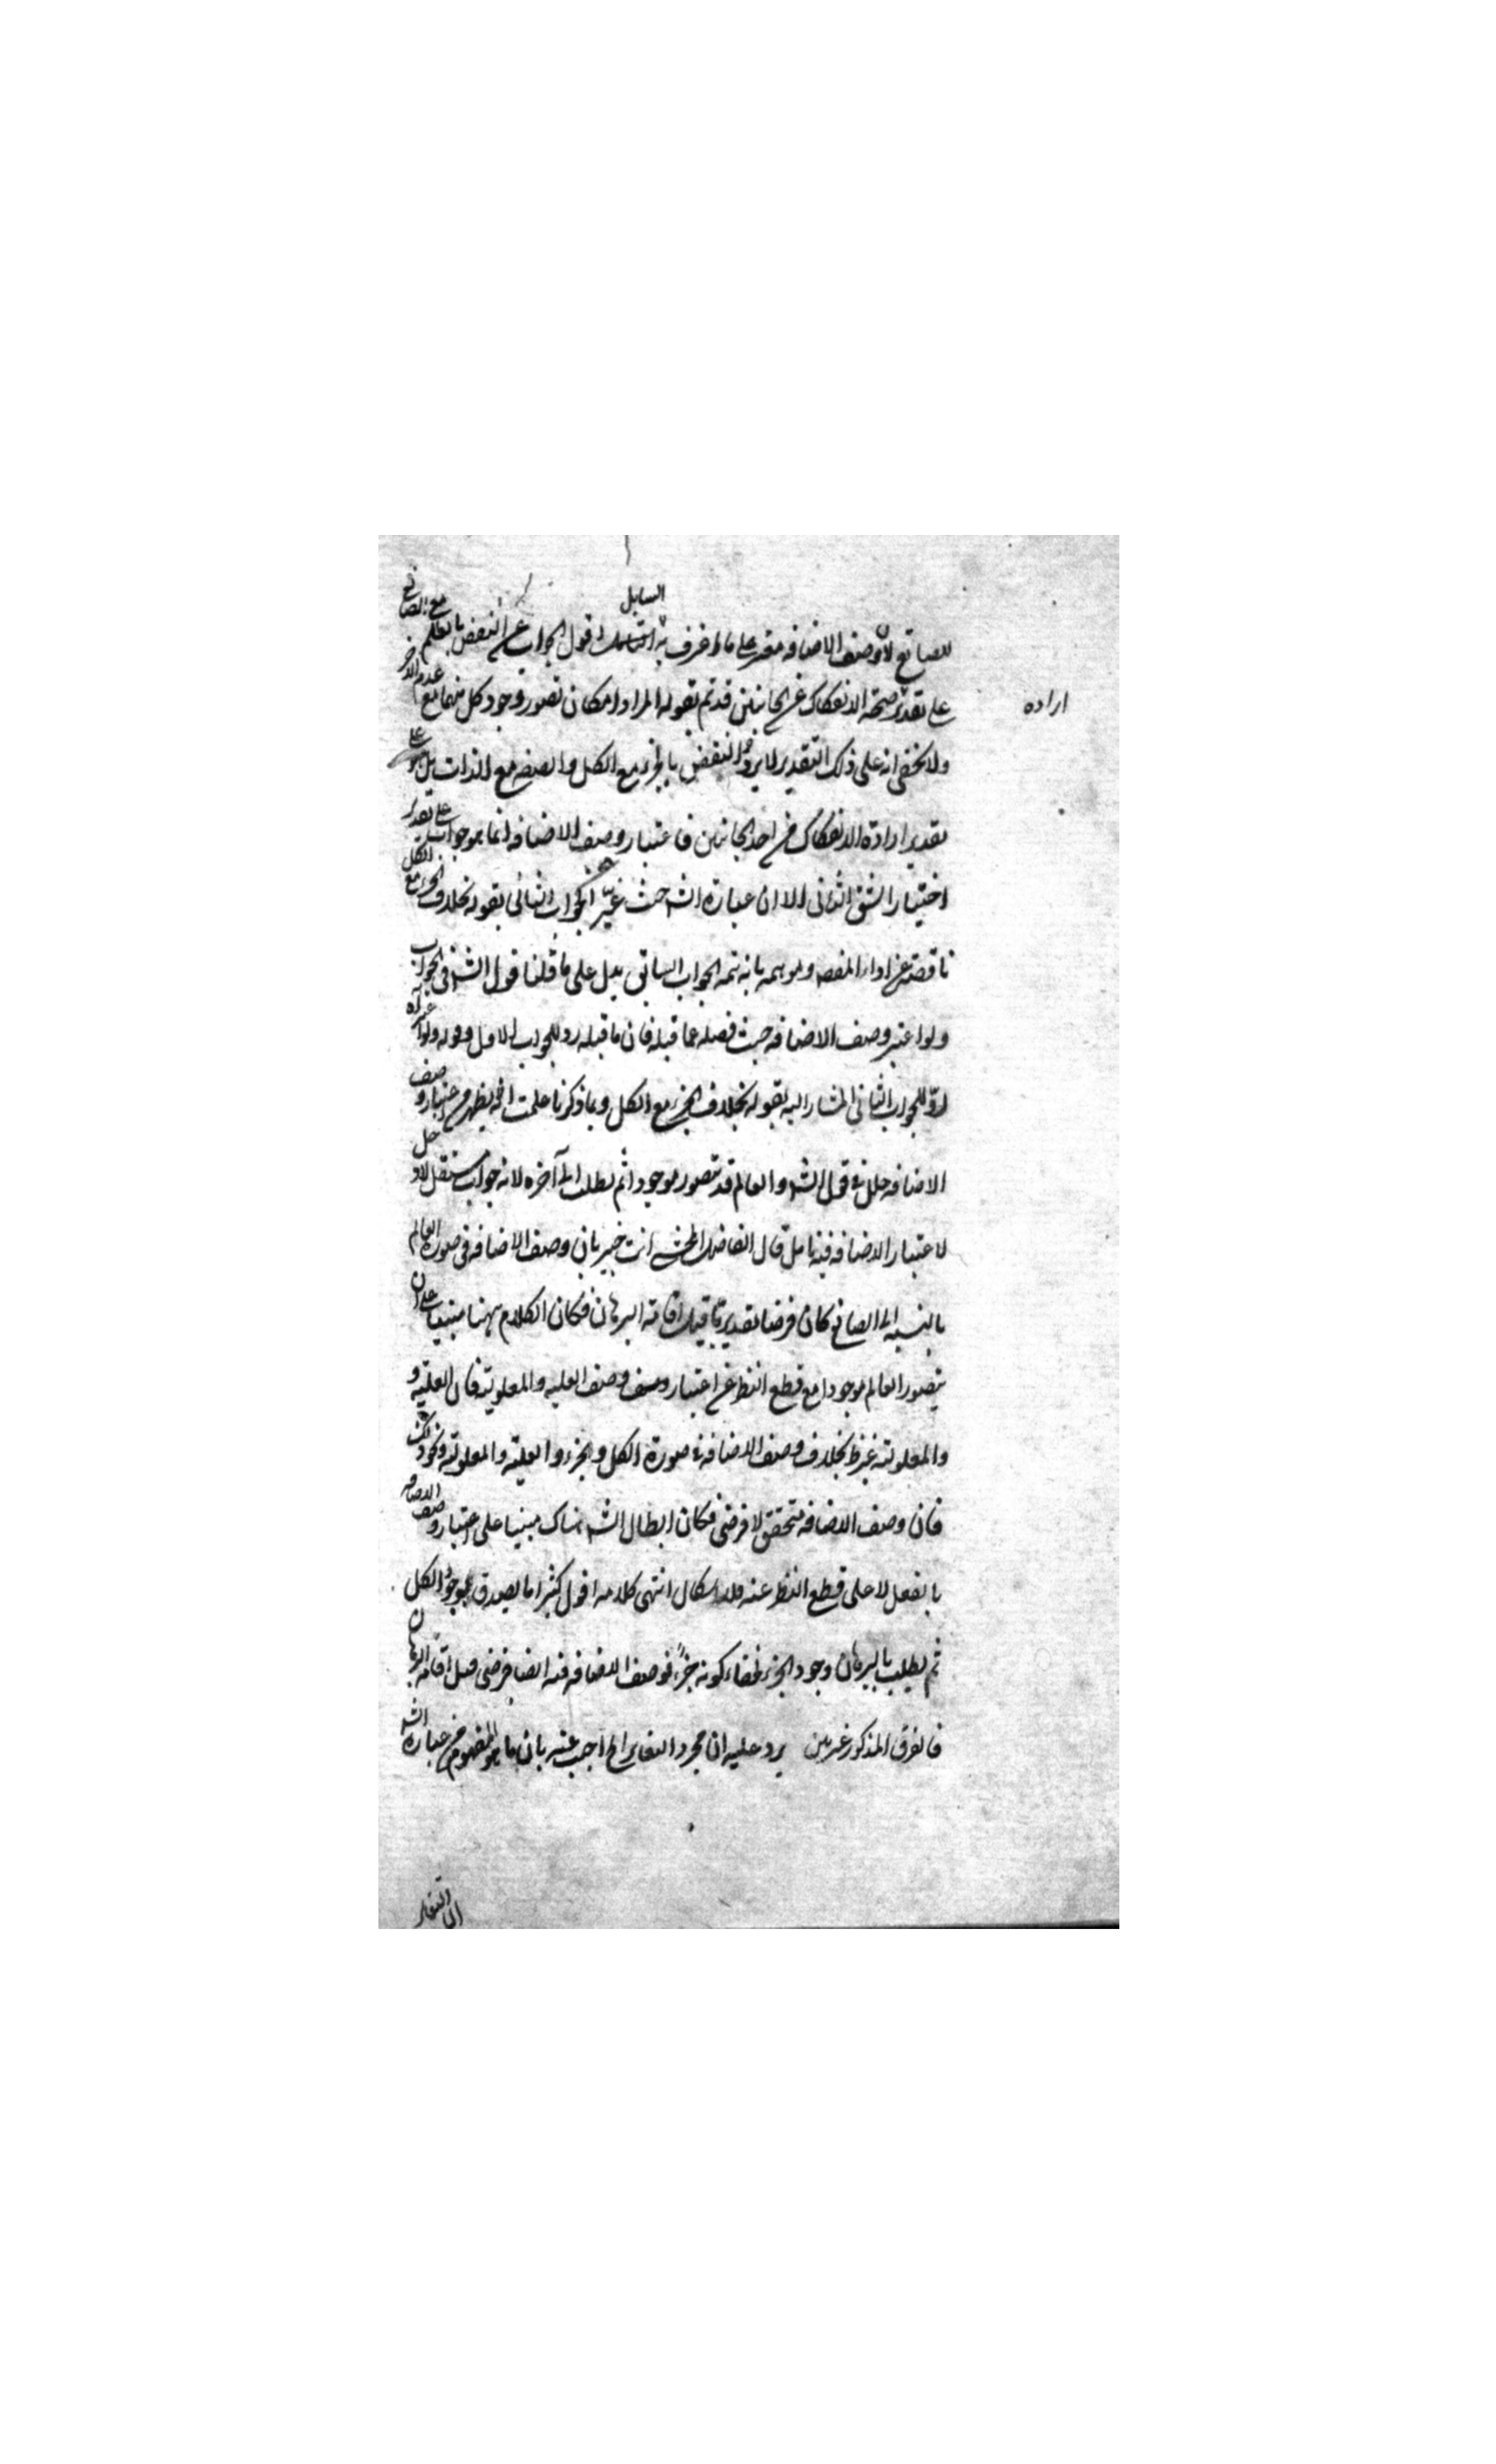 السايل
للصانع لان وصف الاضافة معتبر على ما اعترف به اقول الجواب عن النقض بالعالم مع الصانع
ارادة
على تقدير صحة الانفكاك عن الجانبين قد تم بقوله المراد امكان تصور وجود كل منهما مع عدم الاخر
ولا يخفى انه على ذلك التقدير لا يرد النقض بالجزء مع الكل والصفة مع الذات بل على
تقدير ارادة الانفكاك من احد الجانبين فاعتبار وصف الاضافة انما هو جواب على تقدير
اختيار الشق الثاني الا ان عبارة الش حيث غير الجواب الثاني بقوله بخلاف الجزء مع الكل
ناقصة عن اداء المقصد وموهمة بانه تتمة الجواب السابق يدل على ما قلنا قول الش في الجواب
ولو اعتبر وصف الاضافة حيث فصله عما قبله فان ما قبله رد للجواب الاول وقوله ولو اعتبر آه
رد للجواب الثاني المشار اليه بقوله بخلاف الجزء مع الكل وبما ذكرنا علمت انه يظهر من اعتبار وصف
الاضافة خلل في قول الش والعالم قد يتصور موجودا ثم يطلب الى آخره لانه جواب مستقل لا دخل
لاعتبار الاضافة فيه تامل قال الفاضل المحشي انت خبير بان وصف الاضافة في صورة العالم
بالنسبة الى الصانع كان فرضا تقديريا قبل اقامة البرهان فكان الكلام ههنا مبنيا على ان
يتصور العالم موجودا مع قطع النظر عن اعتبار وصف العلية والمعلولية فان العلية و
والمعلولية بخلاف وصف الاضافة في صورة الكل والجزء والعلية والمعلولية ونحو ذلك
فان وصف الاضافة متحقق لا فرضي فكان ابطال الش هناك مبنيا على اعتبار وصف الاضافة
بالفعل لا على قطع النظر عنه فلا اشكال انتهى كلامه اقول كثيرا ما يصدق بوجود الكل
ثم يطلب بالبرهان وجود الجزء لخفاء كونه جزءا فوصف الاضافة فيه ايضا فرضي قبل اقامة البرهان
فالفرق المذكور غير بين يرد عليه ان مجرد التغاير الخ اجيب عنه بان ما هو المفهوم من عبارة الش